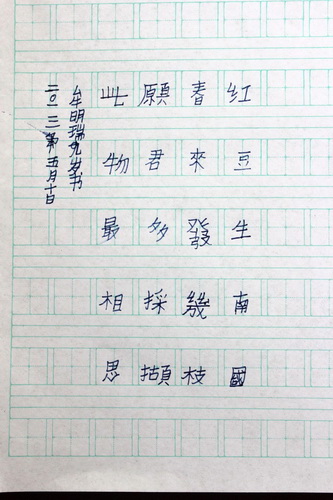 紅豆生南國
春來發幾枝
願君多採擷
此物最相思
牟明瑞九岁书
二〇一三年五月十日